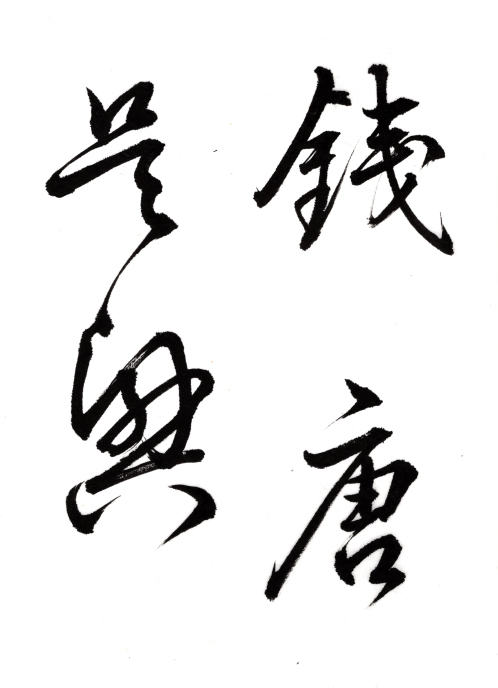 錢唐
吳興